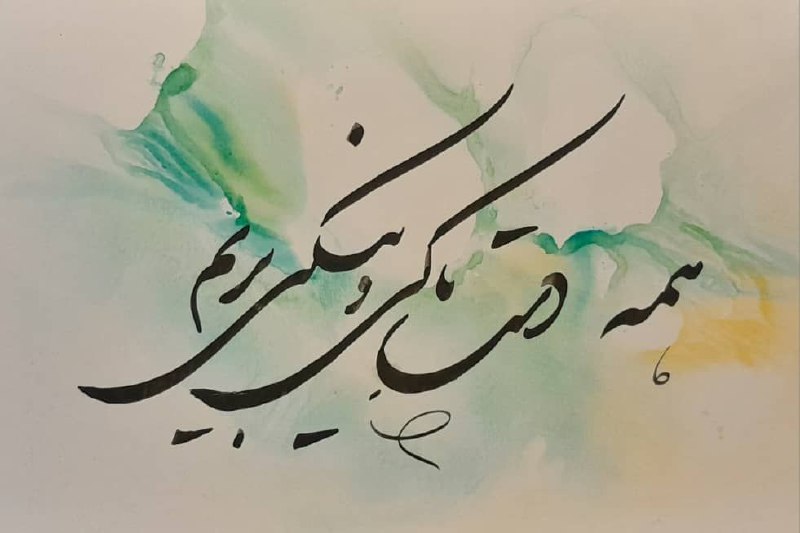 همه دست پاکی و نیکی بریم